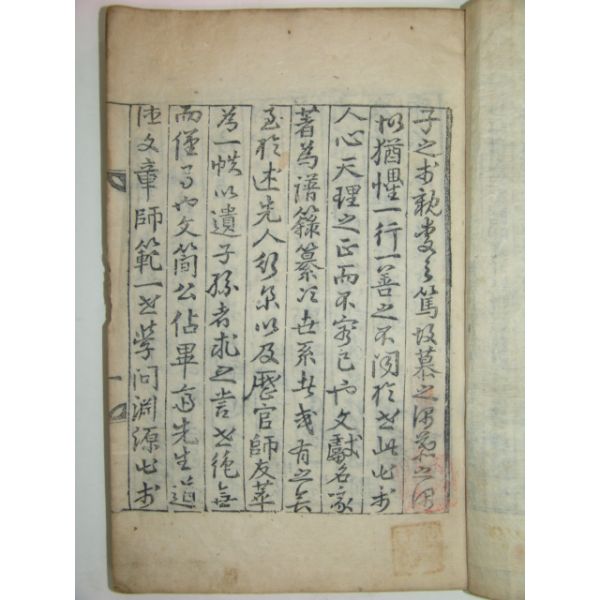 子之於親愛之篤故慕之深慕之深
故猶懼一行一善之不聞於世此出於
人心天理之正而不容已也文獻名家
著爲譜籙纂次世系者或有之矣
至於述先人行
以及歷官師友萃
爲一帙以遺子孫者求之당世絶無
而僅有也文簡公佔畢齋先生道
德文章師範一世學問淵源出於